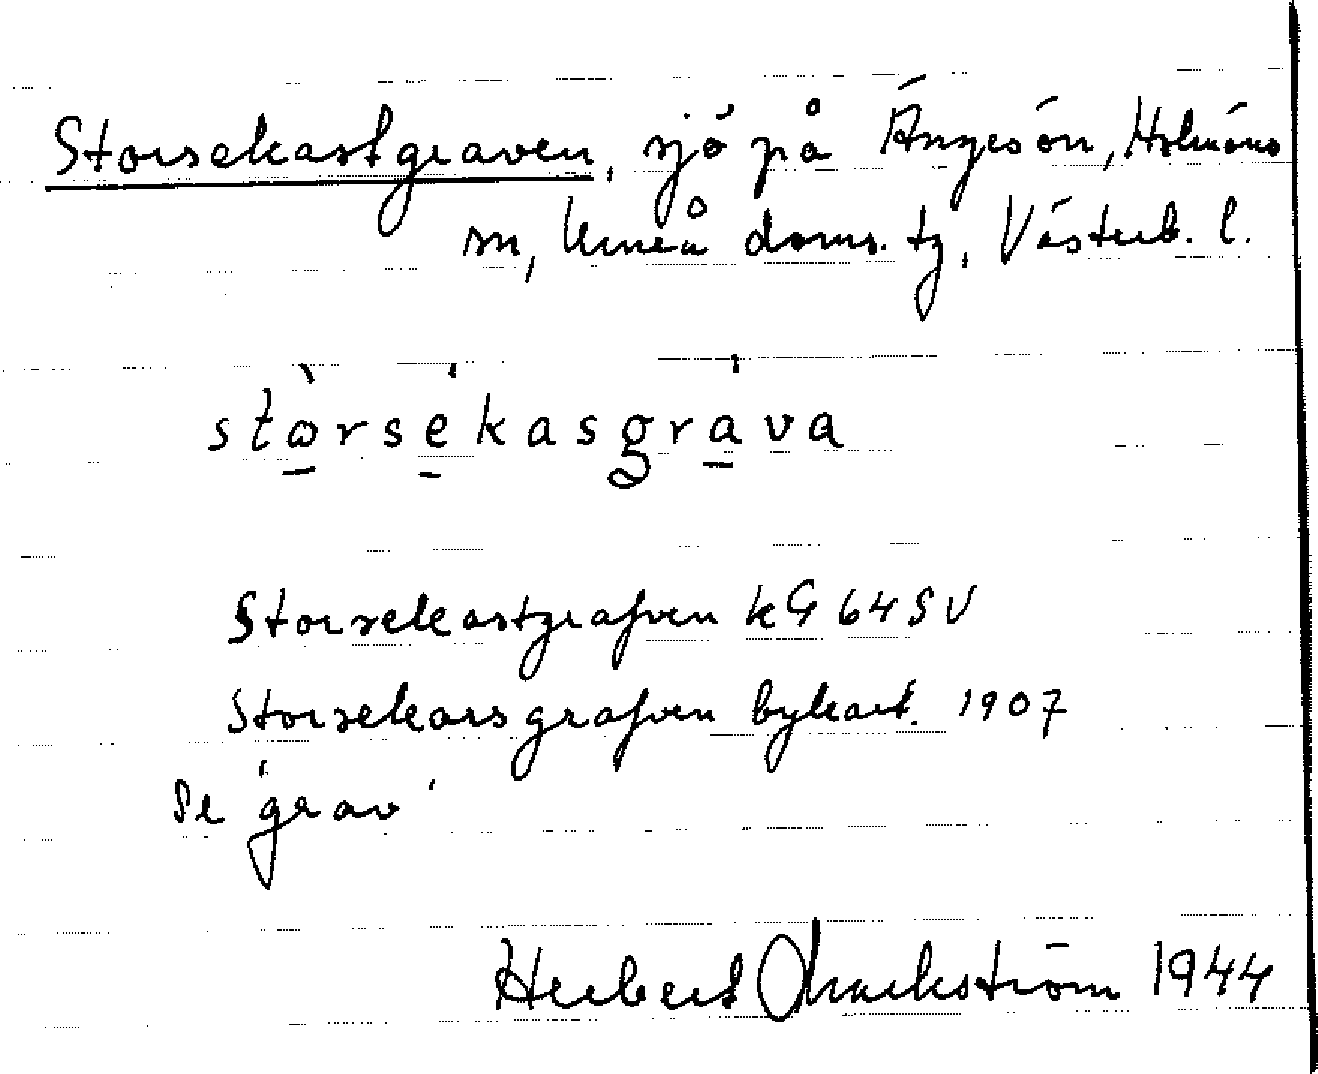 Storsekastgraven, sjö på Ängesön, Holmöns
sn, Umeå doms. tg, Västerb. l.
stòrsekasgrava
Storsekastgrafven kG 64 SV
Storsekarsgrafven bykart. 1907
Se 'grav'
Herbert Markström 1944